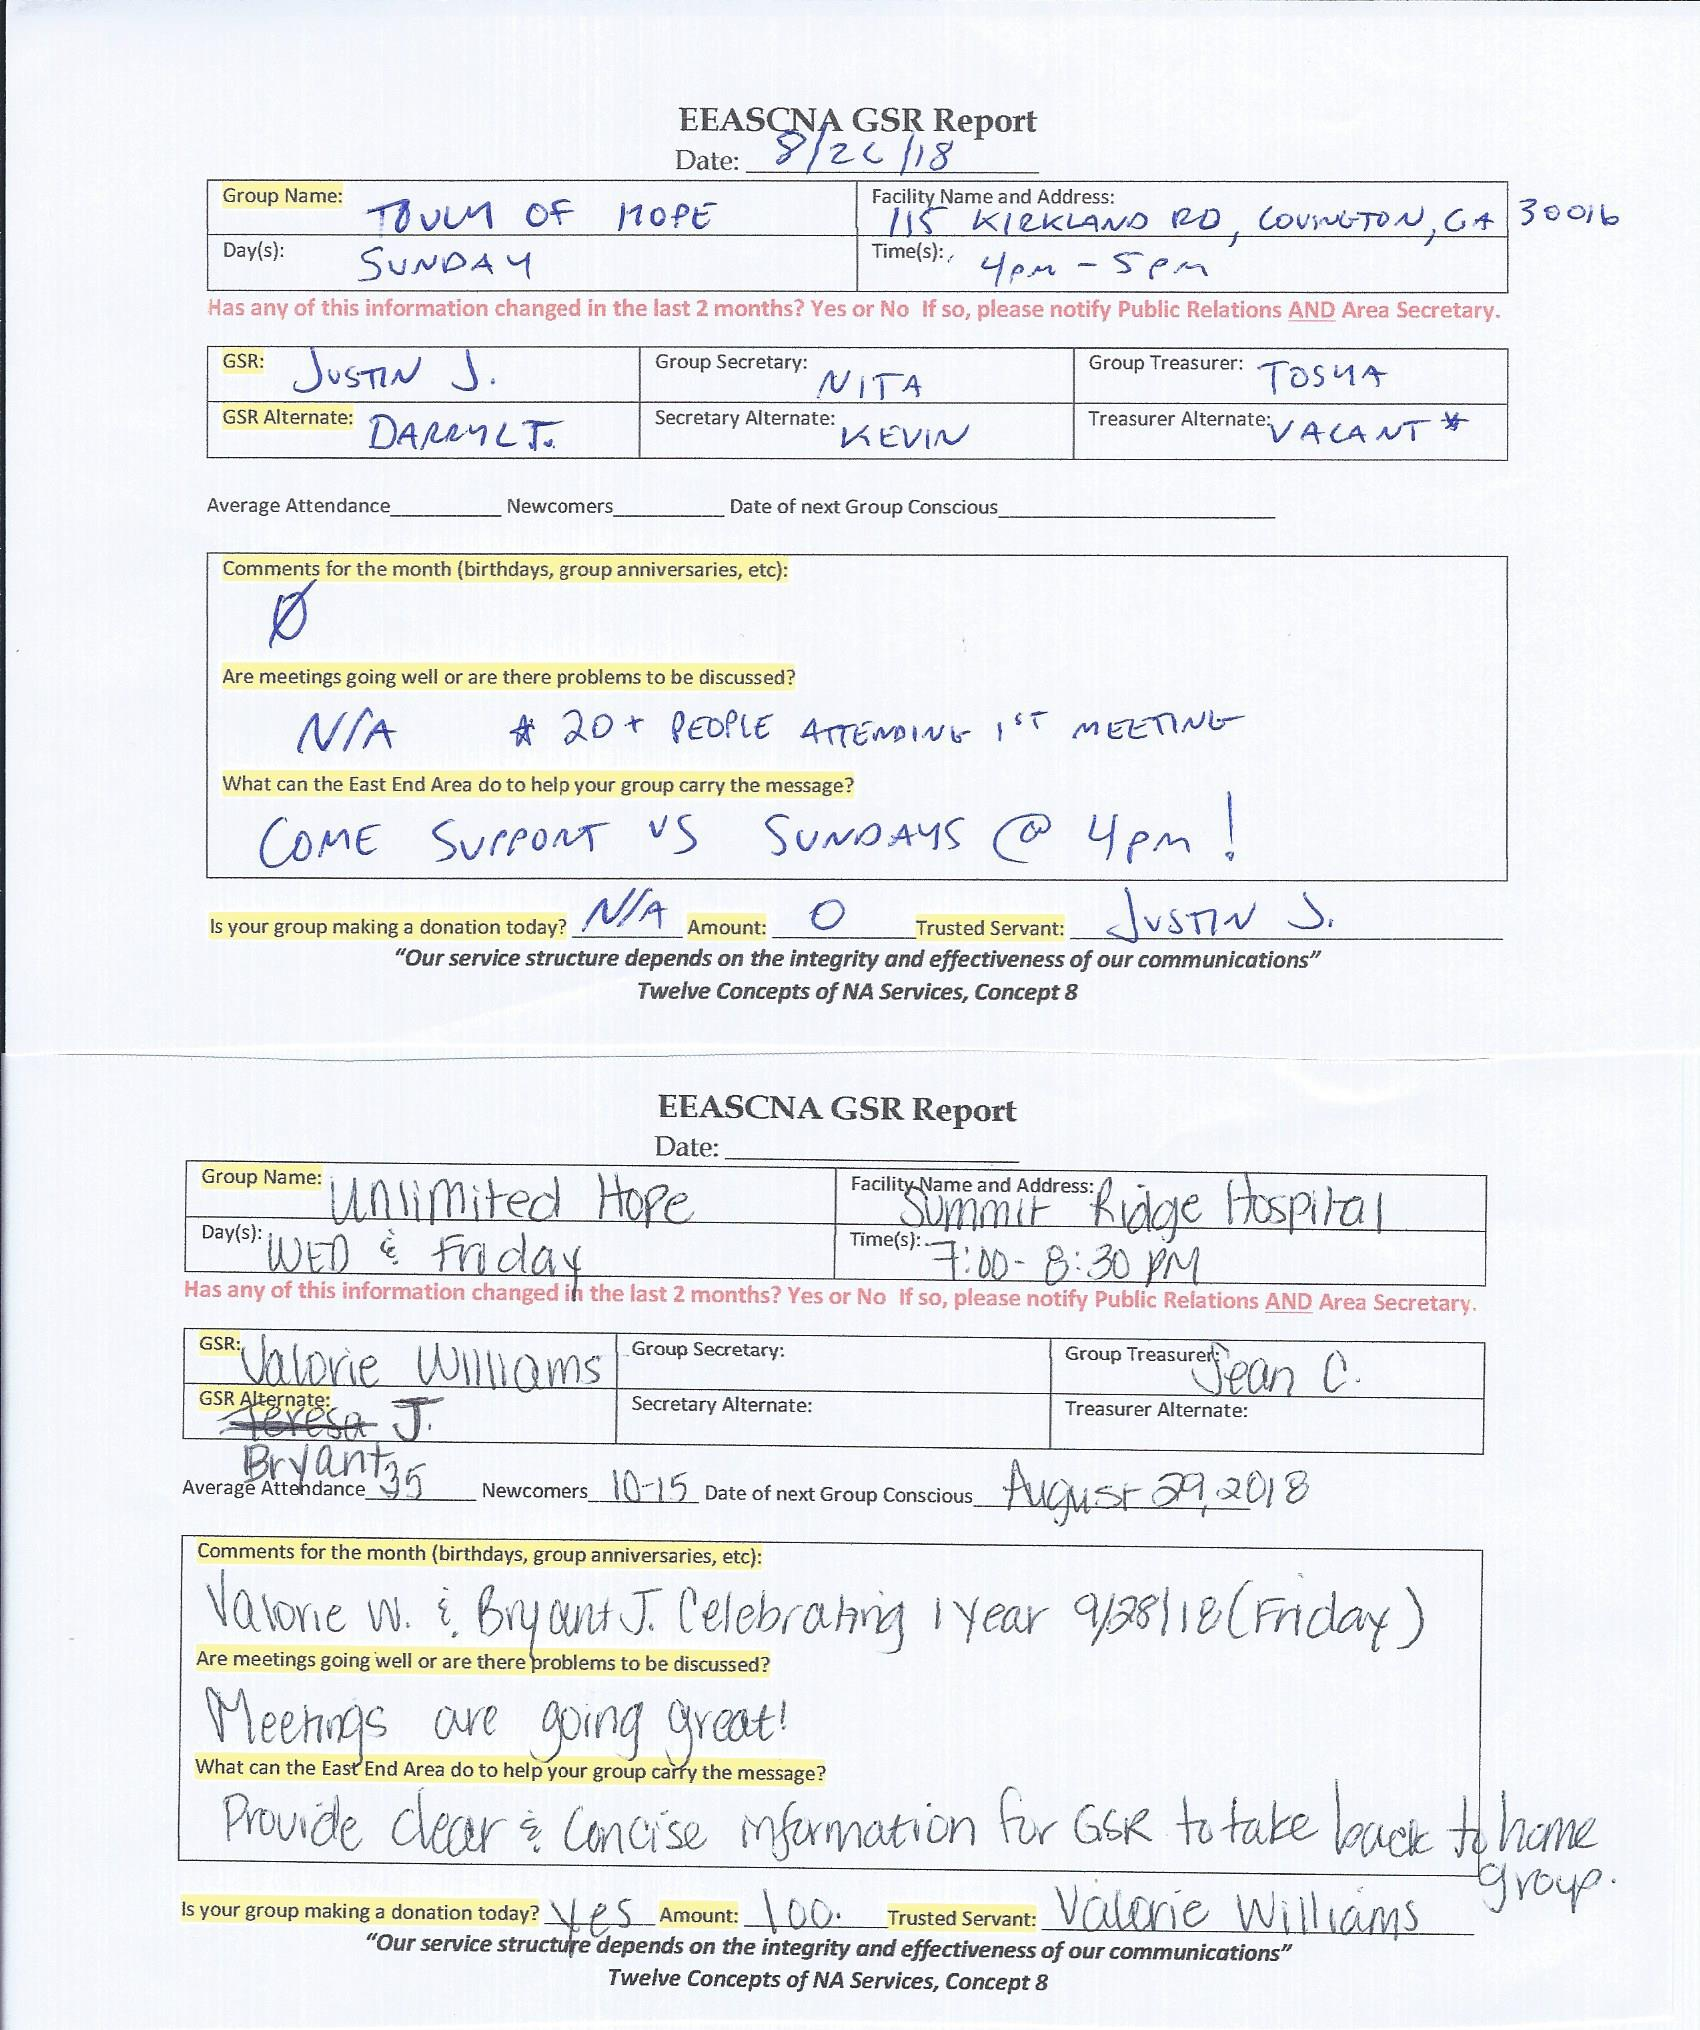 EEASCNA GSR Report
Date: 8/26/18
Group Name: TOUCH OF HOPE
Facility Name and Address: 115 KIRKLAND RD, COVINGTON, GA 30016
Day(s): SUNDAY
Time(s): 4pm - 5pm
Has any of this information changed in the last 2 months? Yes or No If so, please notify Public Relations AND Area Secretary.
GSR: JUSTIN J. Group Secretary: NITA Group Treasurer: TOSHA
GSR Alternate: DARRYL T. Secretary Alternate: KEVIN Treasurer Alternate: VACANT *
Average Attendance__________ Newcomers__________ Date of next Group Conscious__________
Comments for the month (birthdays, group anniversaries, etc):
Ø
Are meetings going well or are there problems to be discussed?
N/A * 20+ PEOPLE ATTENDING 1ST MEETING
What can the East End Area do to help your group carry the message?
COME SUPPORT US SUNDAYS @ 4pm!
Is your group making a donation today? N/A Amount: 0 Trusted Servant: JUSTIN J.
“Our service structure depends on the integrity and effectiveness of our communications”
Twelve Concepts of NA Services, Concept 8
EEASCNA GSR Report
Date: __________
Group Name: Unlimited Hope
Facility Name and Address: Summit Ridge Hospital
Day(s): WED & Friday
Time(s): 7:00 - 8:30 PM
Has any of this information changed in the last 2 months? Yes or No If so, please notify Public Relations AND Area Secretary.
GSR: Valorie Williams Group Secretary: Group Treasurer: Jean C.
GSR Alternate: Teresa J. Secretary Alternate: Treasurer Alternate:
Bryant
Average Attendance 35 Newcomers 10-15 Date of next Group Conscious August 29, 2018
Comments for the month (birthdays, group anniversaries, etc):
Valorie W. & Bryant J. Celebrating 1 Year 9/28/18 (Friday)
Are meetings going well or are there problems to be discussed?
Meetings are going great!
What can the East End Area do to help your group carry the message?
Provide clear & Concise information for GSR to take back to home
group.
Is your group making a donation today? Yes Amount: 100. Trusted Servant: Valorie Williams
“Our service structure depends on the integrity and effectiveness of our communications”
Twelve Concepts of NA Services, Concept 8